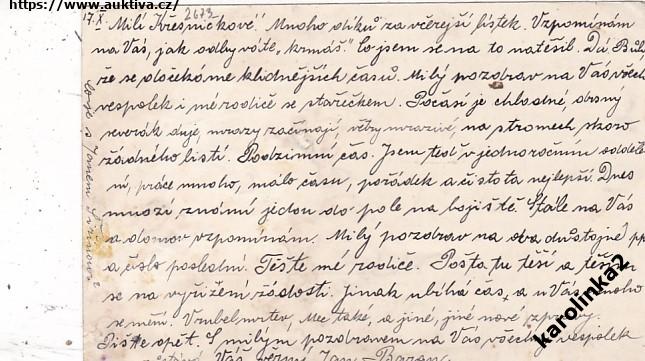 https://www.auktiva.cz/
17.X. 2673
Milí Křesničkové! Mnoho díků za včerejší lístek. Vzpomínám
na Vás, jak odbyváte „krmáš". Co jsem se na to natěšil. Dá Bůh,
že se dočekáme klidnějších časů. Milý pozdrav na Vás všech
vespolek i mé rodiče se stařečkem. Počasí je chladné, drsný
severák duje, mrazy začínají, větry mrazivé, na stromech skoro
žádného listí. Podzimní čas. Jsem teď v jednoročním odděle
ní, práce mnoho, málo času, pořádek a čistota nejlepší. Dnes
mnozí známí jedou do pole na bojiště. Stále na Vás
a domov vzpomínám. Milý pozdrav na oba důstojné pp
a číslo poslední. Těšte mé rodiče. Pošta tu těší a těším
se na vyřízení žádosti. Jinak ubíhá čas, a u Vás mnoho
se mění. take, a jiné, jiné nové zprávy.
Pište opět. S milým pozdravem na Vás všechny vespolek
Váš věrný Jan Baran
Co je s Janem
karolinka2